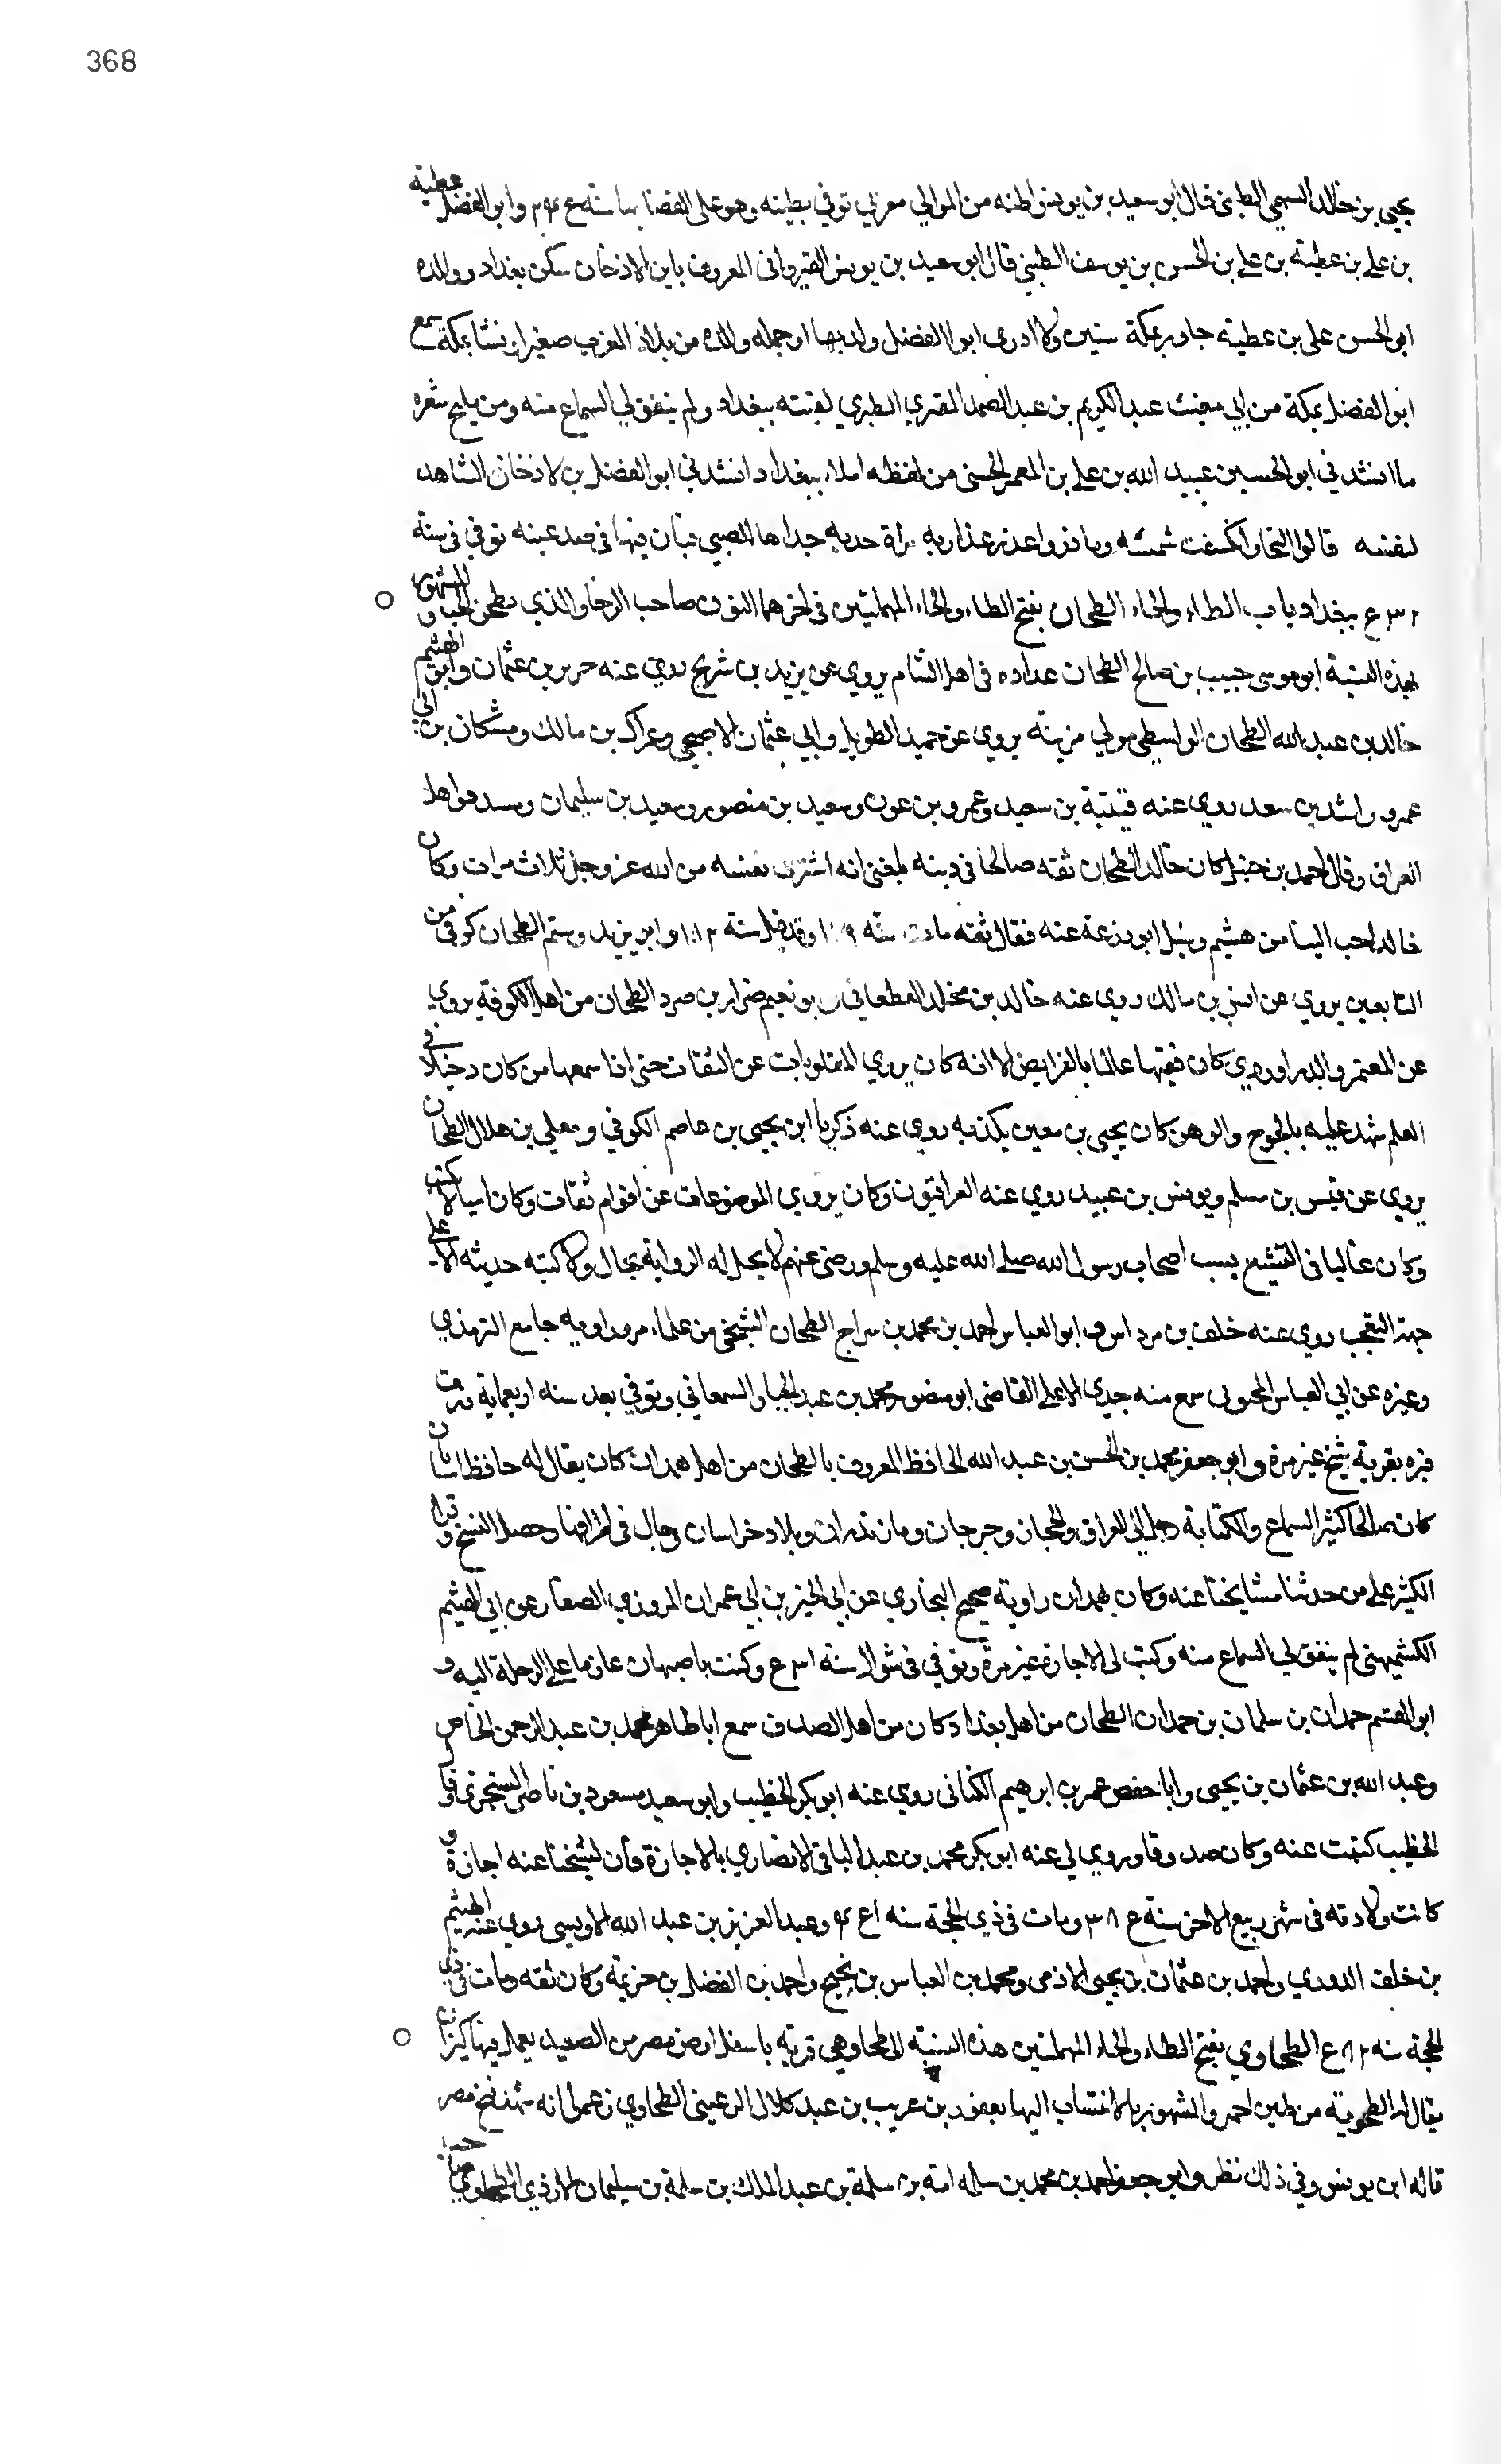 368
يحيى بن خالد السهمي الطبني قال ابو سعيد بن يونس اظنه من الموالي مغربي توفي بطبنه وهو على القضا بها سنة وابو الفضل عطية
بن علي بن عطية بن علي بن الحسن بن يوسف الطبني قال ابو سعيد بن يونس القيرواني المعروف بابن الادخان سكن بغداد ووالده
ابو الحسن علي بن عطية جاور بمكة سنين ولا ادري ابو الفضل ولد بها او حمله والده من بلاد المغرب صغيرا ونشا بمكة سمع
ابو الفضل بمكة من ابي معشر عبد الكريم بن عبد الصمد المقري الطبري لقيته ببغداد ولم يتفق لي السماع منه ومن مليح شعره
ما انشدني ابو الحسين عبيد الله بن علي بن المعمر الحسني من لفظه املاء ببغداد انشدني ابو الفضل بن لادخان الشاهد
لنفسه قالوا التحا وانكسفت شمسه وما دروا عذر عذاريه مراة خديه جلاها الصبي فبان فيها في صدغيه توفي في سنة
ببغداد باب الطاء والحاء الطحان بفتح الطاء والحاء المهملتين في اخرهما النون صاحب الرحا والذي يطحن الحب والمشهور
بهذه النسبة ابو موسى حبيب بن صالح الطحان عداده في اهل الشام يروي عن يزيد بن شريح روي عنه حريز بن عثمان وابو الهيثم
خالد بن عبد الله الطحان الواسطي مولي مزينه يروي عن حميد الطويل وابي عثمان الاصبحي وعراك بن مالك ومشكان بن ابي
عمرو راشد بن سعد روي عنه قتيبة بن سعيد وعمرو بن عون وسعيد بن منصور وسعيد بن سليمان ومسدد واهل
العراق وقال احمد بن حنبل كان خالد الطحان ثقه صالحا في دينه بلغني انه اشترى نفسه من الله عز وجل ثلاث مرات وكان
خالد احب الينا من هشيم وسئل ابو زرعة عنه فقال ثقه مات سنه وقد قيل سنة وابو يزيد رستم الطحان كوفي من
التابعين يروي عن انس بن مالك روي عنه خالد بن مخلد القطواني وابو نعيم ضرار بن صرد الطحان من اهل الكوفة يروي
عن المعتمر والدراوردي كان فقيها عالما بالفرايض الا انه كان يروي المقلوبات عن الثقات حتى اذا سمعها من كان دخيلا في
العلم شهد عليه بالجرح والوهن كان يحيى بن معين يكذبه روي عنه ذكريا ابن يحيى بن عاصم الكوفي ومعلي بن هلال الطحان
يروي عن قيس بن مسلم ويونس بن عبيد روي عنه العراقيون وكان يروي الموضوعات عن اقوام ثقات وكان اميا لا يكتب
وكان غاليا في التشيع يسب اصحاب رسول الله صلى الله عليه وسلم ورضي عنهم لا يحل له الرواية بحال ولا كتبه حديثه الا على
جهة التعجب روي عنه خلف بن مرداس و ابو العباس احمد بن محمد بن سراج الطحان الشيخي من علماء مرو راويه جامع الترمذي
وغيره عن ابي العباس المحبوبي سمع منه جدي الاعلى القاضي ابو منصور محمد بن عبد الجبار السمعاني وتوفي بعد سنه اربعماية وزرت
قبره بقرية شيخ غير مرة و ابو جعفر محمد بن الحسن بن عبد الله الحافظ المعروف بالطحان من اهل همدان كان يقال له حافظ
كان صالحا كثير السماع والكتابة رحل الى العراق والحجاز وجرجان ومازندران وبلاد خراسان وجال في اطرافها وحصل النسخ وقرا
الكثير على من حدثنا مشايخنا عنه وكان بهمدان راوية صحيح البخاري عن ابي الخير بن ابي عمران المروزي الصفار عن ابي الهيثم
الكشميهني لم يتفق لي السماع منه وكتب لي الاجازة غير مرة وتوفي في شوال سنة وكنت باصبهان عازما على الرحلة اليه و
ابو القسم حمدان بن سلمان بن حمدان الطحان من اهل بغداد كان من اهل الصدق سمع ابا طاهر محمد بن عبد الرحمن المخلص
وعبد الله بن عثمان بن يحيى وابا حفص عمر بن ابرهيم الكتاني روي عنه ابو بكر الخطيب وابو سعيد مسعود بن ناصر السنجري وقال
الخطيب كتبت عنه وكان صدوقا وروي لي عنه ابو بكر محمد بن عبد الباقي الانصاري بالاجازة فان لشيخنا عنه اجازة و
كانت ولادته في شهر ربيع الاخر سنة ومات في ذي الحجة سنه وعبد العزيز بن عبد الله الاويسي روي عنه الهيثم
بن خلف الدوري واحمد بن عثمان بن يحيى الادمي ومحمد بن العباس بن نجيح واحمد بن الفضل بن خزيمة وكان ثقه ومات في ذي
الحجة سنه الطحاوي بفتح الطاء والحاء المهملتين هذه النسبة الى طحا وهي قرية باسفل ارض مصر من الصعيد يعمل فيها كيزان
يقال لها الطحوية من طين احمر والمشهور بالانتساب اليها يعفور بن عريب بن عبد كلال الرعيني الطحاوي زعموا انه شهد فتح مصر
قاله ابن يونس وفي ذلك نظر وابو جعفر احمد بن محمد بن سلامه بن سلمة بن عبد الملك بن سلمة بن سليمان الازدي الطحاوي صاحب